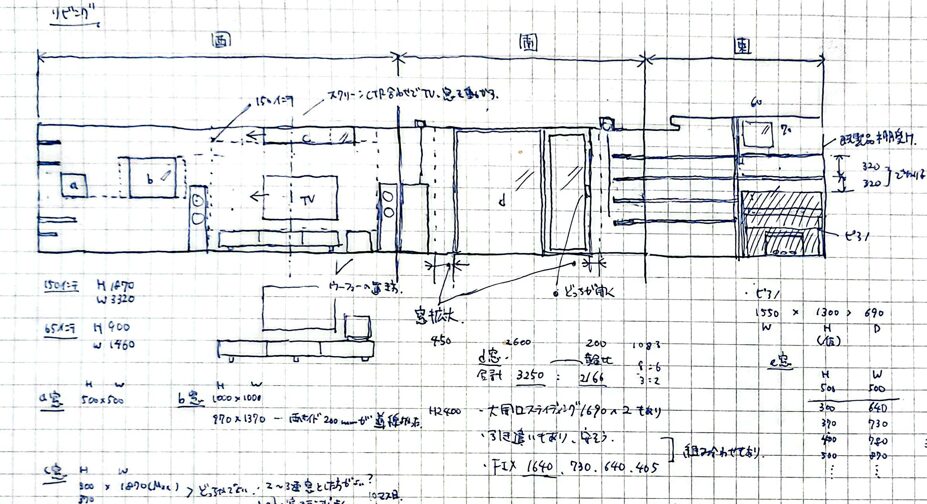 リビング
西
南
東
150インチ
スクリーンCTR合わせでTV、窓
60
70
既製品 棚受け
320
320
a
b
c
d
TV
ピアノ
ウーファーの置き方.
窓拡大.
どっちが開く
150インチ H 1870
W 3320
65インチ H 900
W 1460
450
2600
200
1083
d窓.
合計 3250 : 2166
8:6
3:2
H2400
・大開口スライディング 1690×2 もあり
・引き違いもあり、
・FIX 1640 , 730 . 640 . 405
組み合わせもあり.
・ピアノ
1550 × 1300 × 690
W H D
(仮)
e窓
H W
500 500
300 640
370 730
400 780
500 870
H W
a窓 500×500
H W
b窓 1000×1000
970×1370 ー 両サイド200mmが
c窓 H W
300 × 1870(Max)
370
2〜3連窓としたほうがよい?